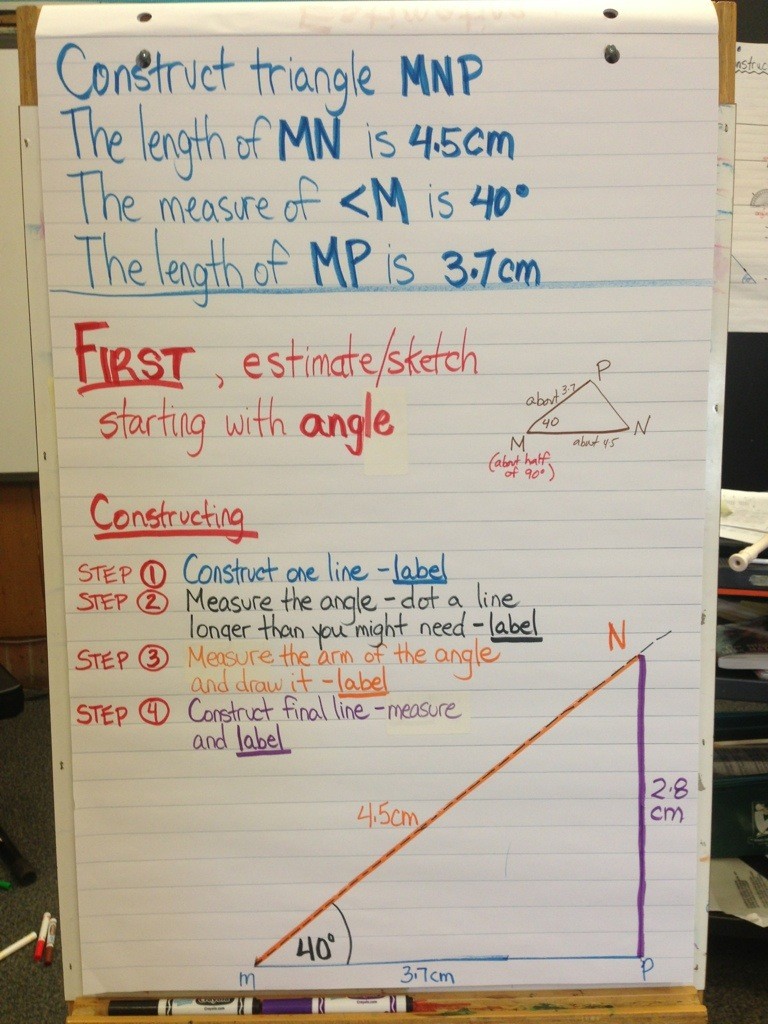 Construct triangle MNP
The length of MN is 4.5cm
The measure of <M is 40°
The length of MP is 3.7cm
FIRST, estimate/sketch
starting with angle
P
about 3.7
40
M
N
about 4.5
(about half
of 90°)
Constructing
STEP 1 Construct one line - label
STEP 2 Measure the angle - dot a line
longer than you might need - label
STEP 3 Measure the arm of the angle
and draw it - label
STEP 4 Construct final line - measure
and label
N
4.5cm
2.8
cm
40°
m
3.7cm
P